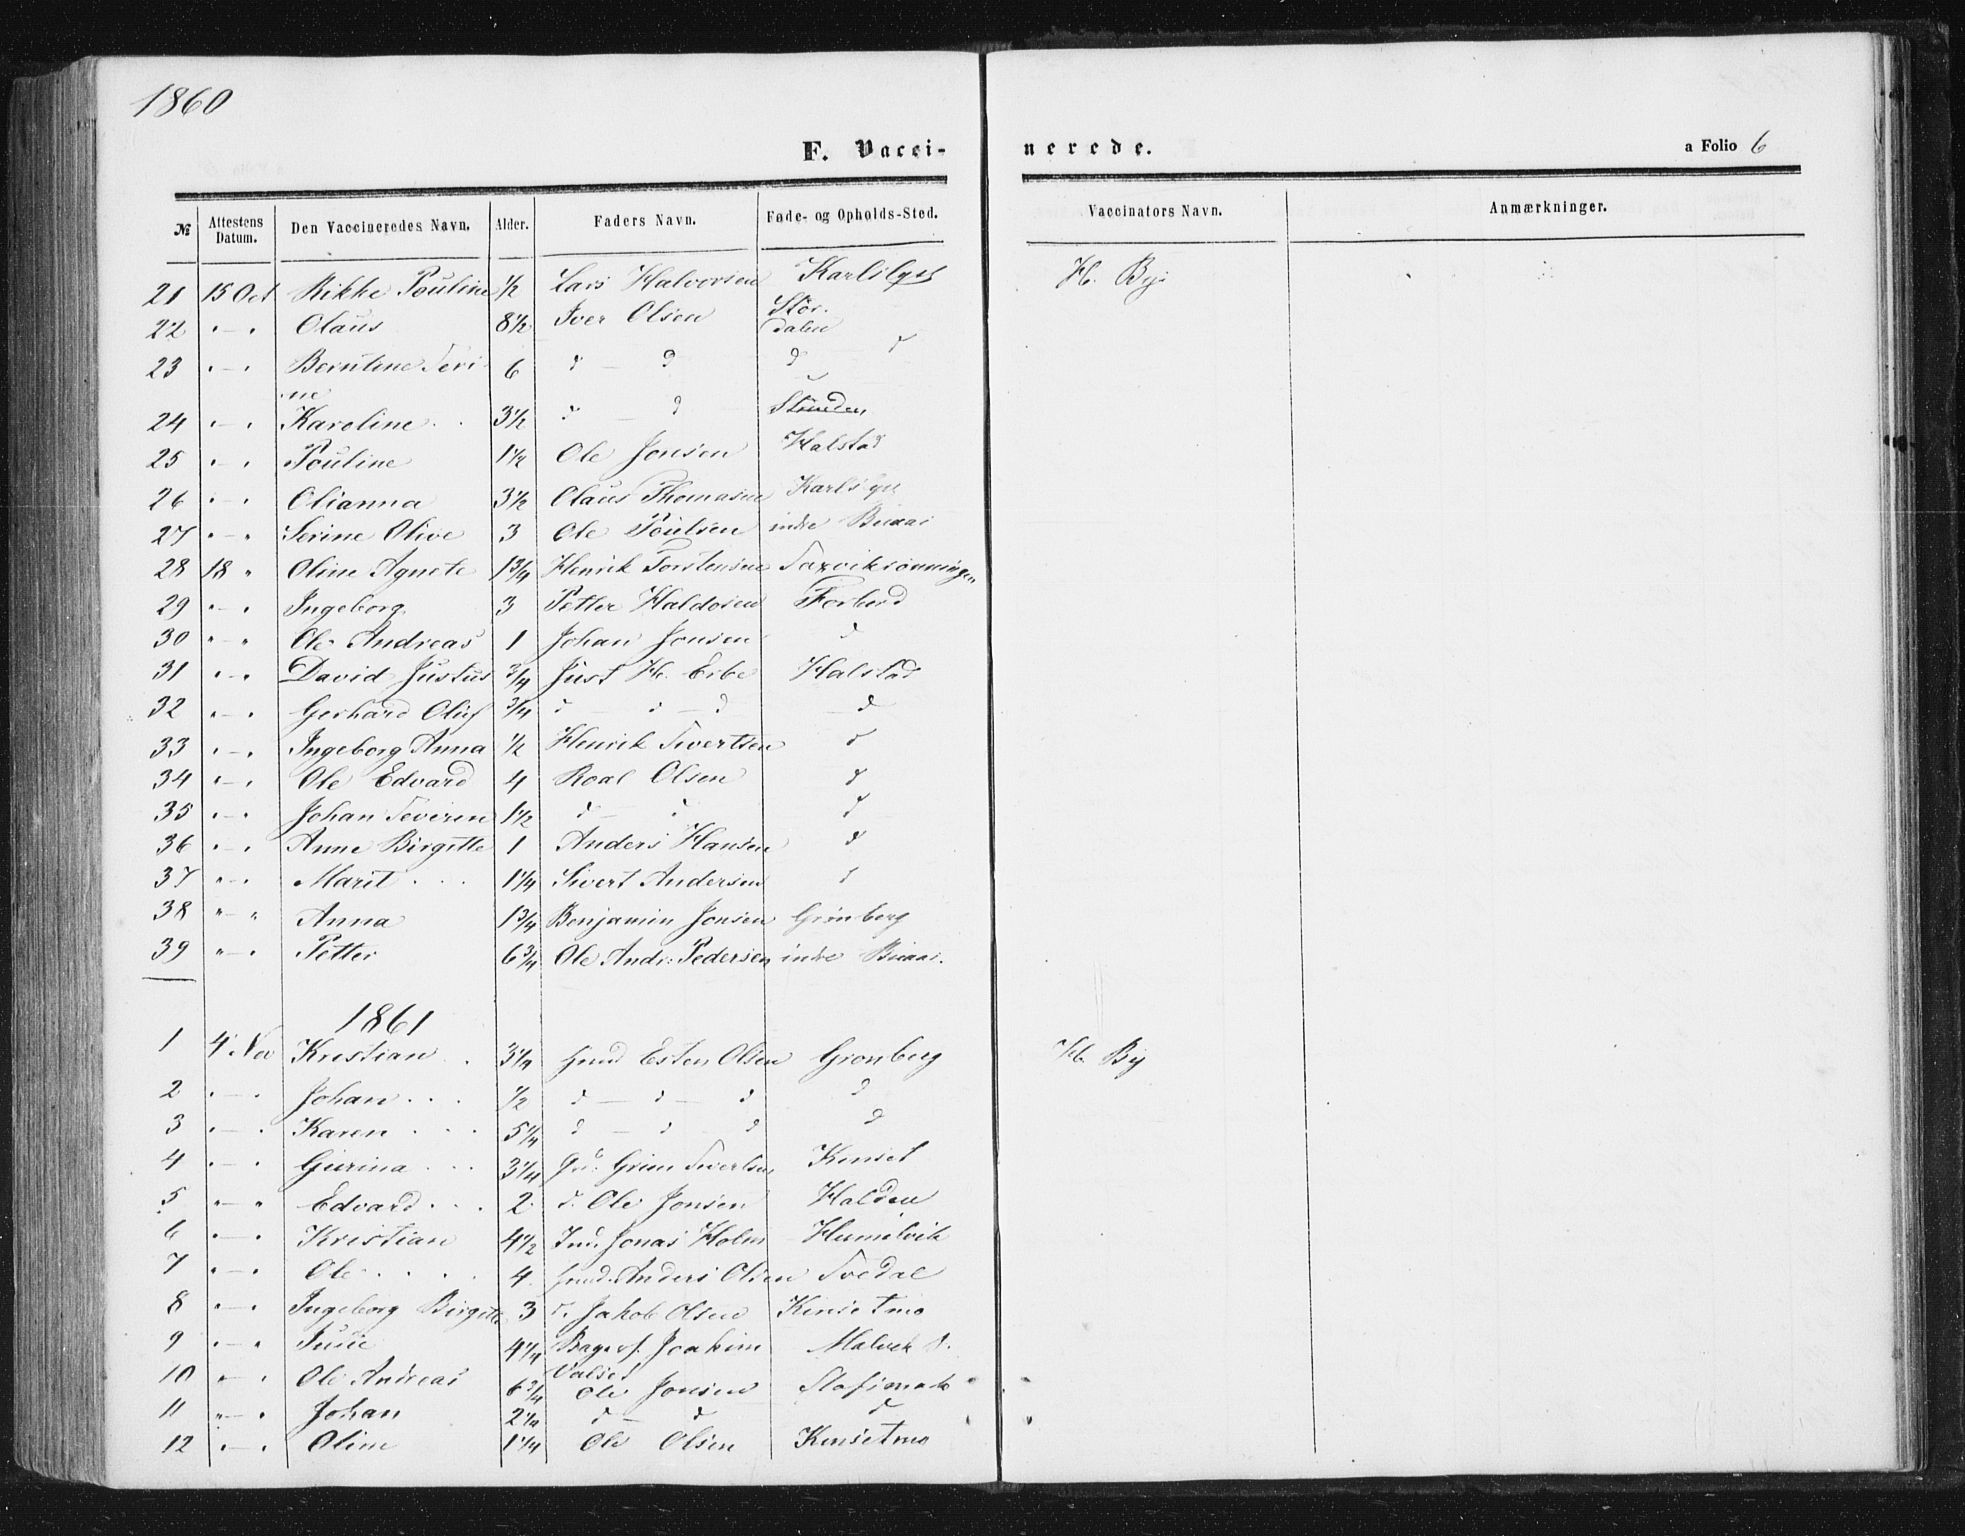 1860
F. Vacci-
nerede.
a Folio 6
№ Attestens Datum. Den Vaccineredes Navn. Alder. Faders Navn. Føde- og Opholds-Sted. Vaccinators Navn. Anmærkninger.
21 15 Oct Rikke Pouline ½ Lars Halvorsen Karlslyst H. By
22 " — " Olaus 8½ Iver Olsen Stør-
dalen
23 " — " Berntine Seri- 6 d — d d
ne
24 " — " Karoline 3½ d — d
25 " — " Pouline 1½ Ole Jonsen Halstad
26 " — " Olianna 3½ Olaus Thomasen Karlslyst
27 " — " Serine Olive 3 Ole Poulsen indre Buaas
28 18 " Oline Agnete 1¾ Henrik Torstensen
29 " — " Ingeborg 3 Petter Haldosen Forbord
30 " — " Ole Andreas 1 Johan Jonsen d
31 " — " David Justus ¾ Just H. Erbe Halstad
32 " — " Gerhard Oluf ¾ d d — d d
33 " — " Ingeborg Anna ½ Henrik Sivertsen d
34 " — " Ole Edvard 4 Roal Olsen d
35 " — " Johan Severin 1½ d — d d
36 " — " Anne Birgitte 1 Anders Hansen d
37 " — " Marit 1¼ Sivert Andersen d
38 " — " Anna 1¾ Benjamin Jonsen Grønberg
39 " — " Petter 6¾ Ole Andr: Pedersen indre Buaas.
1861
1 4 Nov Kristian 3¼ Esten Olsen Gronberg H. By
2 " — " Johan ½ d — d — d d
3 " — " Karen 5¼ d — d — d d
4 " — " Gurina 3¼ Grim Sivertsen Kinset
5 " — " Edvard 2 d. Ole Jonsen Halden
6 " — " Kristian 4½ Ind. Jonas Holm Humelvik
7 " — " Ole 4 Anders Olsen Svedal
8 " — " Ingeborg Birgitte 3 d. Jakob Olsen Kinsetmo
9 " — " 4¼ Joakim Malvik
Valset
10 " — " Ole Andreas 6¾ Ole Jonsen
11 " — " Johan d — d d
12 " — " Oline 1¼ Ole Olsen Kinsetmo